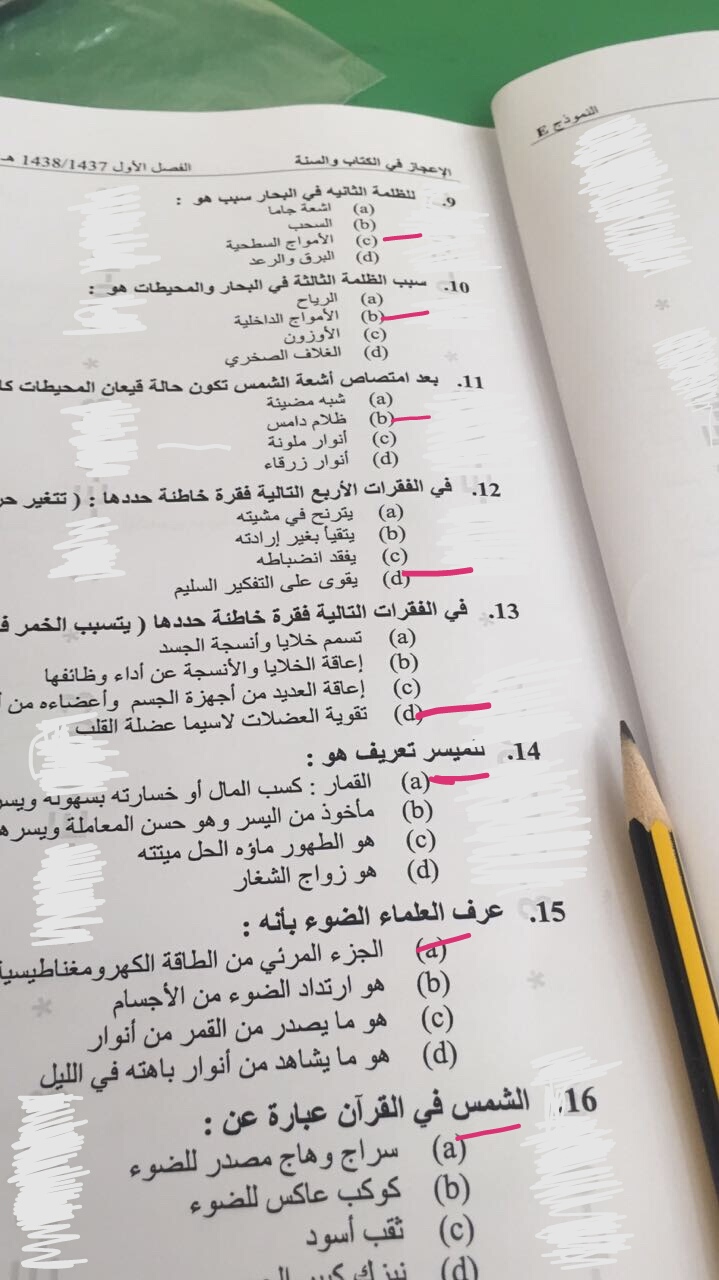 النموذج E
الإعجاز في الكتاب والسنة الفصل الأول 1438/1437 هـ
.9 للظلمة الثانيه في البحار سبب هو :
(a) اشعة جاما
(b) السحب
(c) الأمواج السطحية
(d) البرق والرعد
.10 سبب الظلمة الثالثة في البحار والمحيطات هو :
(a) الرياح
(b) الأمواج الداخلية
(c) الأوزون
(d) الغلاف الصخري
.11 بعد امتصاص أشعة الشمس تكون حالة قيعان المحيطات
(a) شبه مضيئة
(b) ظلام دامس
(c) أنوار ملونة
(d) أنوار زرقاء
.12 في الفقرات الأربع التالية فقرة خاطئة حددها : ( تتغير
(a) يترنح في مشيته
(b) يتقيأ بغير إرادته
(c) يفقد انضباطه
(d) يقوى على التفكير السليم
.13 في الفقرات التالية فقرة خاطئة حددها ( يتسبب الخمر
(a) تسمم خلايا وأنسجة الجسد
(b) إعاقة الخلايا والأنسجة عن أداء وظائفها
(c) إعاقة العديد من أجهزة الجسم وأعضاءه من
(d) تقوية العضلات لاسيما عضلة القلب
.14 للميسر تعريف هو :
(a) القمار : كسب المال أو خسارته بسهولة
(b) مأخوذ من اليسر وهو حسن المعاملة
(c) هو الطهور ماؤه الحل ميتته
(d) هو زواج الشغار
.15 عرف العلماء الضوء بأنه :
(a) الجزء المرئي من الطاقة الكهرومغناطيسية
(b) هو ارتداد الضوء من الأجسام
(c) هو ما يصدر من القمر من أنوار
(d) هو ما يشاهد من أنوار باهته في الليل
.16 الشمس في القرآن عبارة عن :
(a) سراج وهاج مصدر للضوء
(b) كوكب عاكس للضوء
(c) ثقب أسود
(d) نيزك